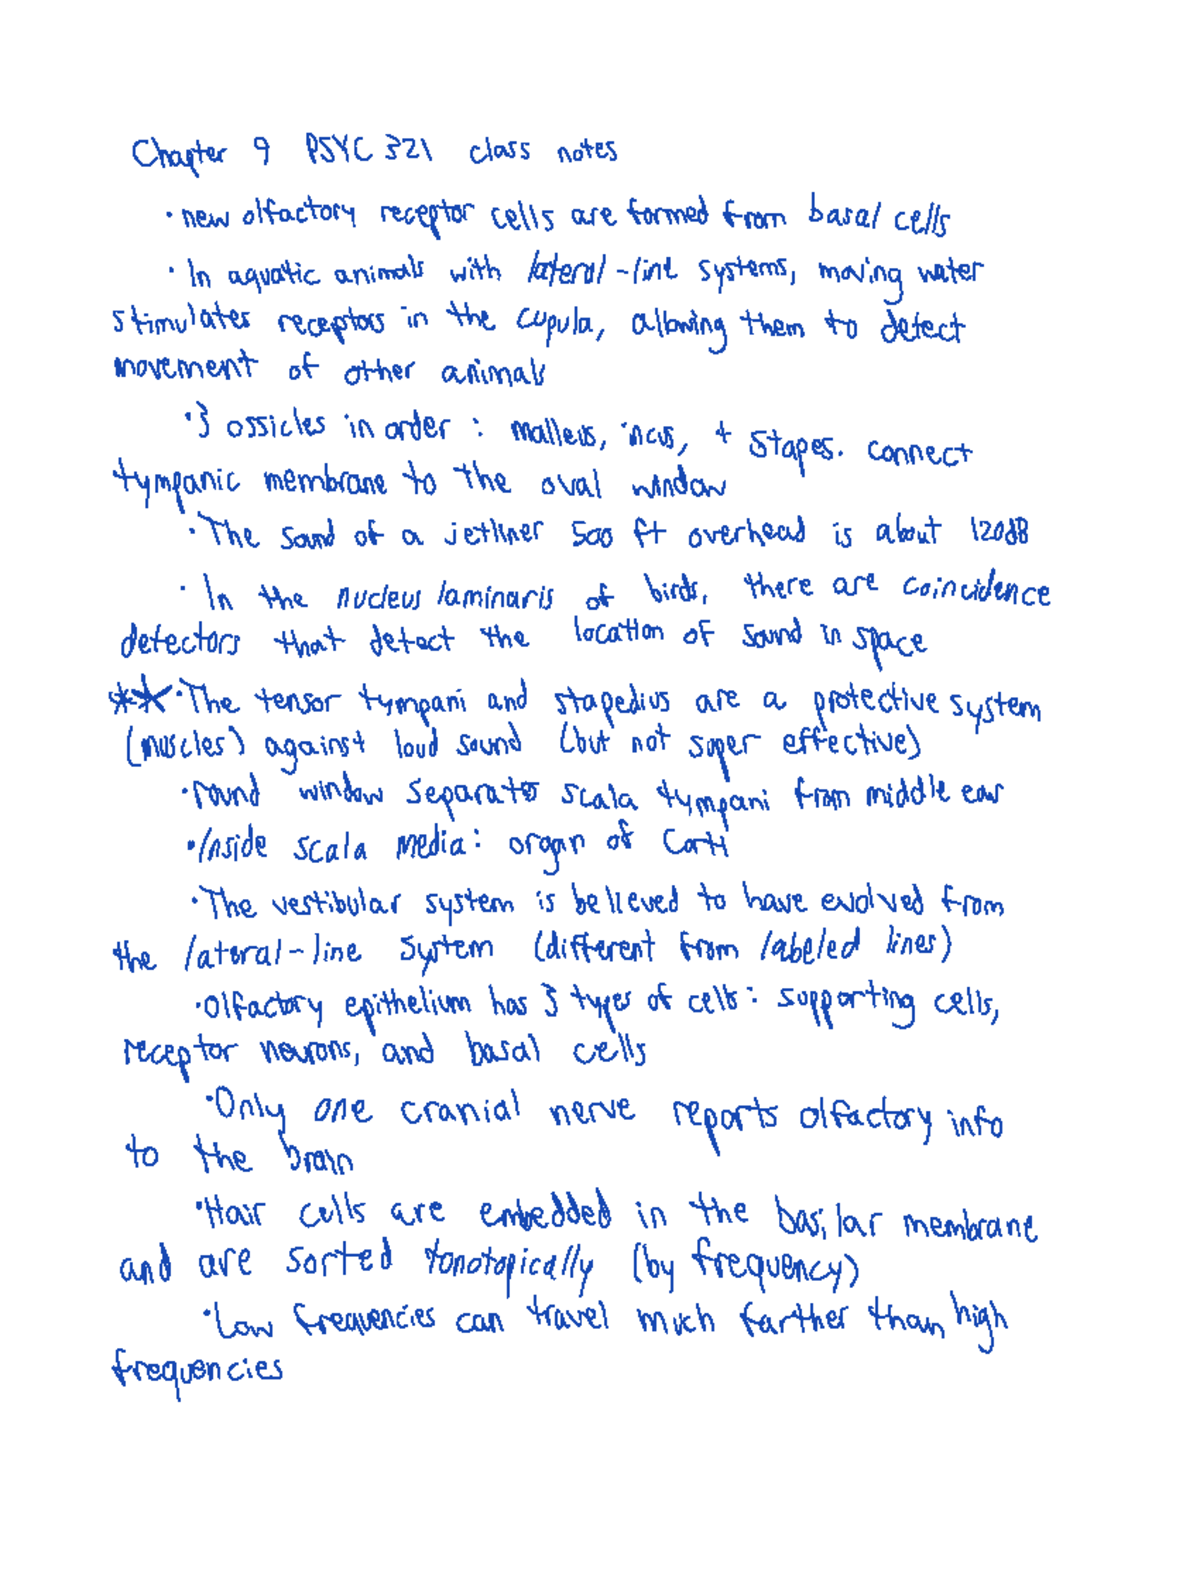 Chapter 9 PSYC 321 class notes
· new olfactory receptor cells are formed from basal cells
· In aquatic animals with lateral-line systems, moving water
stimulates receptors in the cupula, allowing them to detect
movement of other animals
· 3 ossicles in order: malleus, incus, + stapes. connect
tympanic membrane to the oval window
· The sound of a jetliner 500 ft overhead is about 120dB
· In the nucleus laminaris of birds, there are coincidence
detectors that detect the location of sound in space
**· The tensor tympani and stapedius are a protective system
(muscles) against loud sound (but not super effective)
· round window separates scala tympani from middle ear
· Inside scala media: organ of Corti
· The vestibular system is believed to have evolved from
the lateral-line system (different from labeled lines)
· Olfactory epithelium has 3 types of cells: supporting cells,
receptor neurons, and basal cells
· Only one cranial nerve reports olfactory info
to the brain
· Hair cells are embedded in the basilar membrane
and are sorted tonotopically (by frequency)
· Low frequencies can travel much farther than high
frequencies